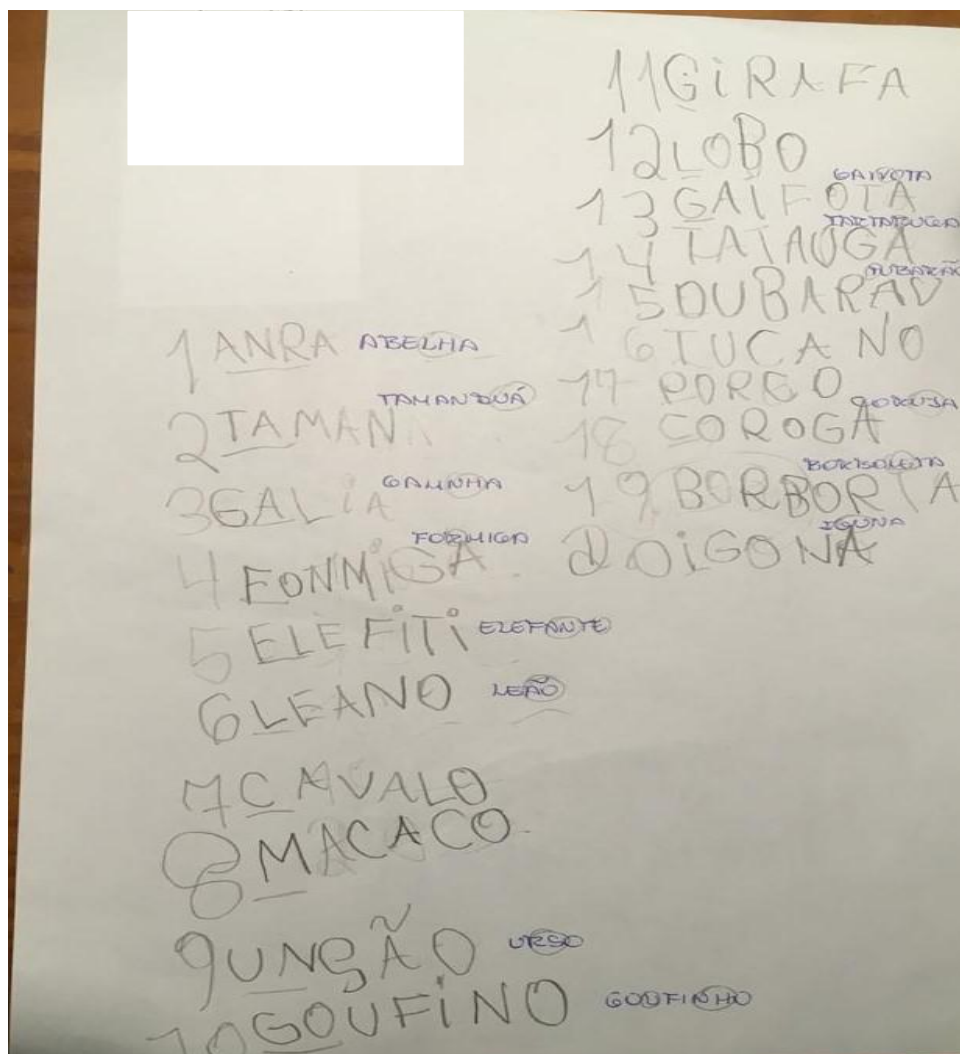 1 ANRA ABELHA
2 TAMAN TAMANDUÁ
3 GALIA GALINHA
4 FONMIGA FORMIGA
5 ELEFITI ELEFANTE
6 LEANO LEÃO
7 CAVALO
8 MACACO
9 UNSÃO URSO
10 GOUFINO GOUFINHO
11 GIRAFA
12 LOBO
13 GAIFOTA GAIVOTA
14 TATAUGA TARTARUGA
15 DUBARAO TUBARÃO
16 TUCANO
17 PORCO
18 COROGA CORUJA
19 BORBORTA BORBOLETA
20 IGONA IGUNA